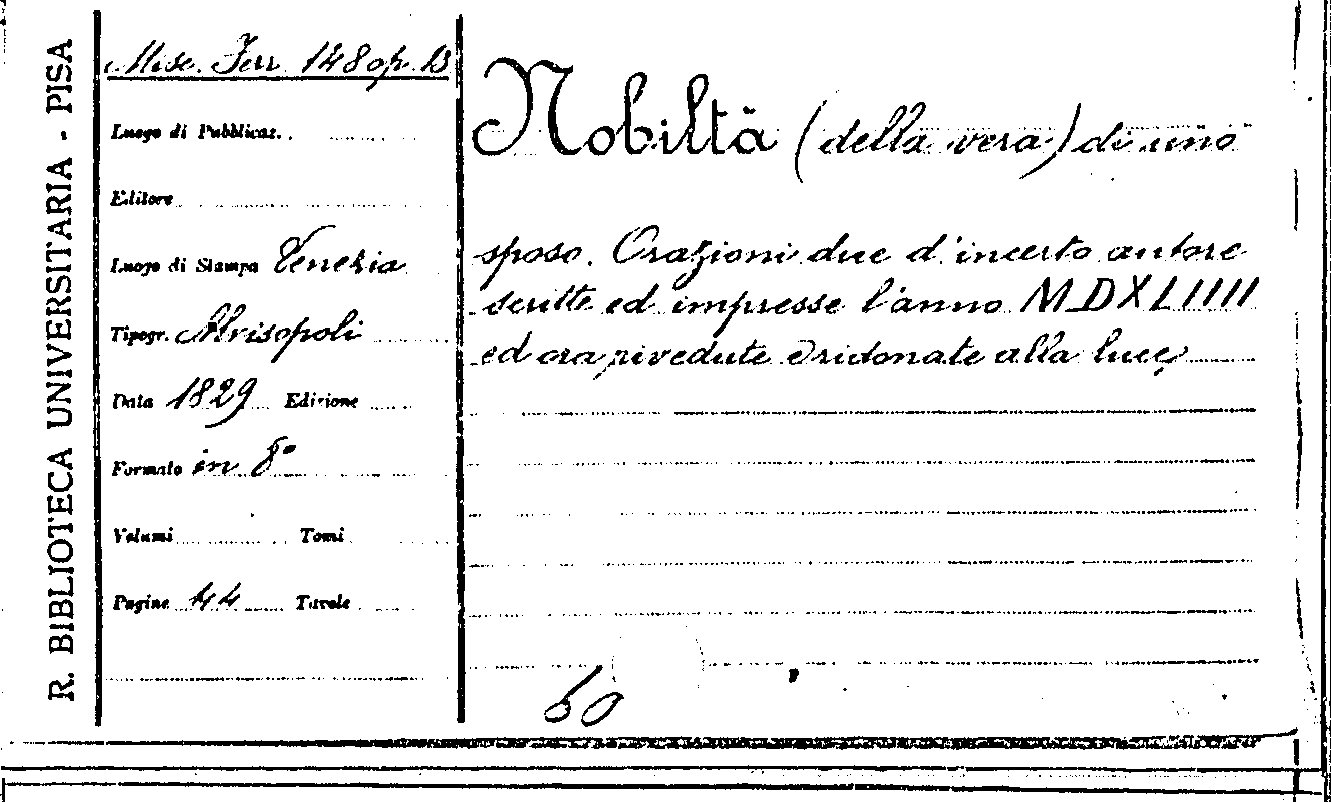 R. BIBLIOTECA UNIVERSITARIA - PISA
Misc. Ferr. 148 op. 13
Luogo di Pubblicaz.
Editore
Luogo di Stampa Venezia
Tipogr. Alvisopoli
Data 1829 Edizione
Formato in 8°
Volumi Tomi
Pagine 44 Tavole
Nobiltà (della vera) di uno
sposo. Orazioni due d'incerto autore
scritte ed impresse l'anno MDXLIIII
ed ora rivedute e ridonate alla luce
60